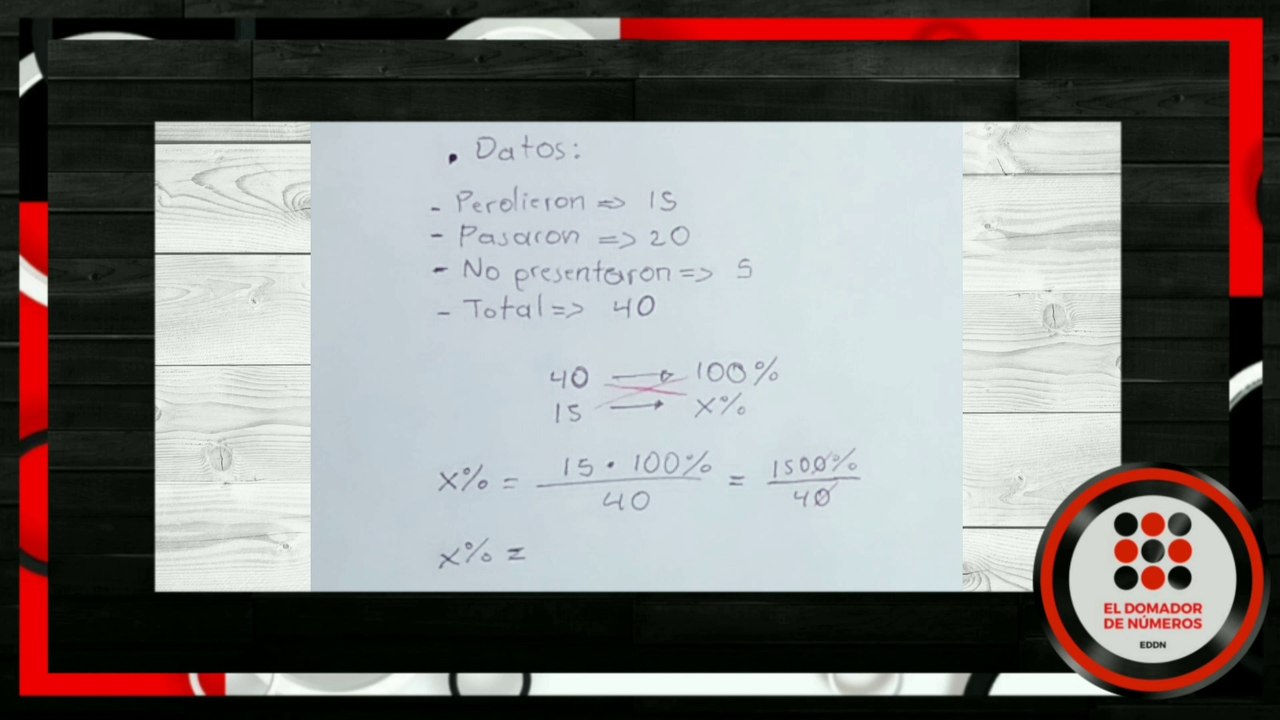 . Datos:
- Perdieron => 15
- Pasaron => 20
- No presentaron => 5
- Total => 40
40 → 100%
15 → X%
X% = 15 · 100% / 40 = 1500% / 40
X% =
EL DOMADOR
DE NÚMEROS
EDDN